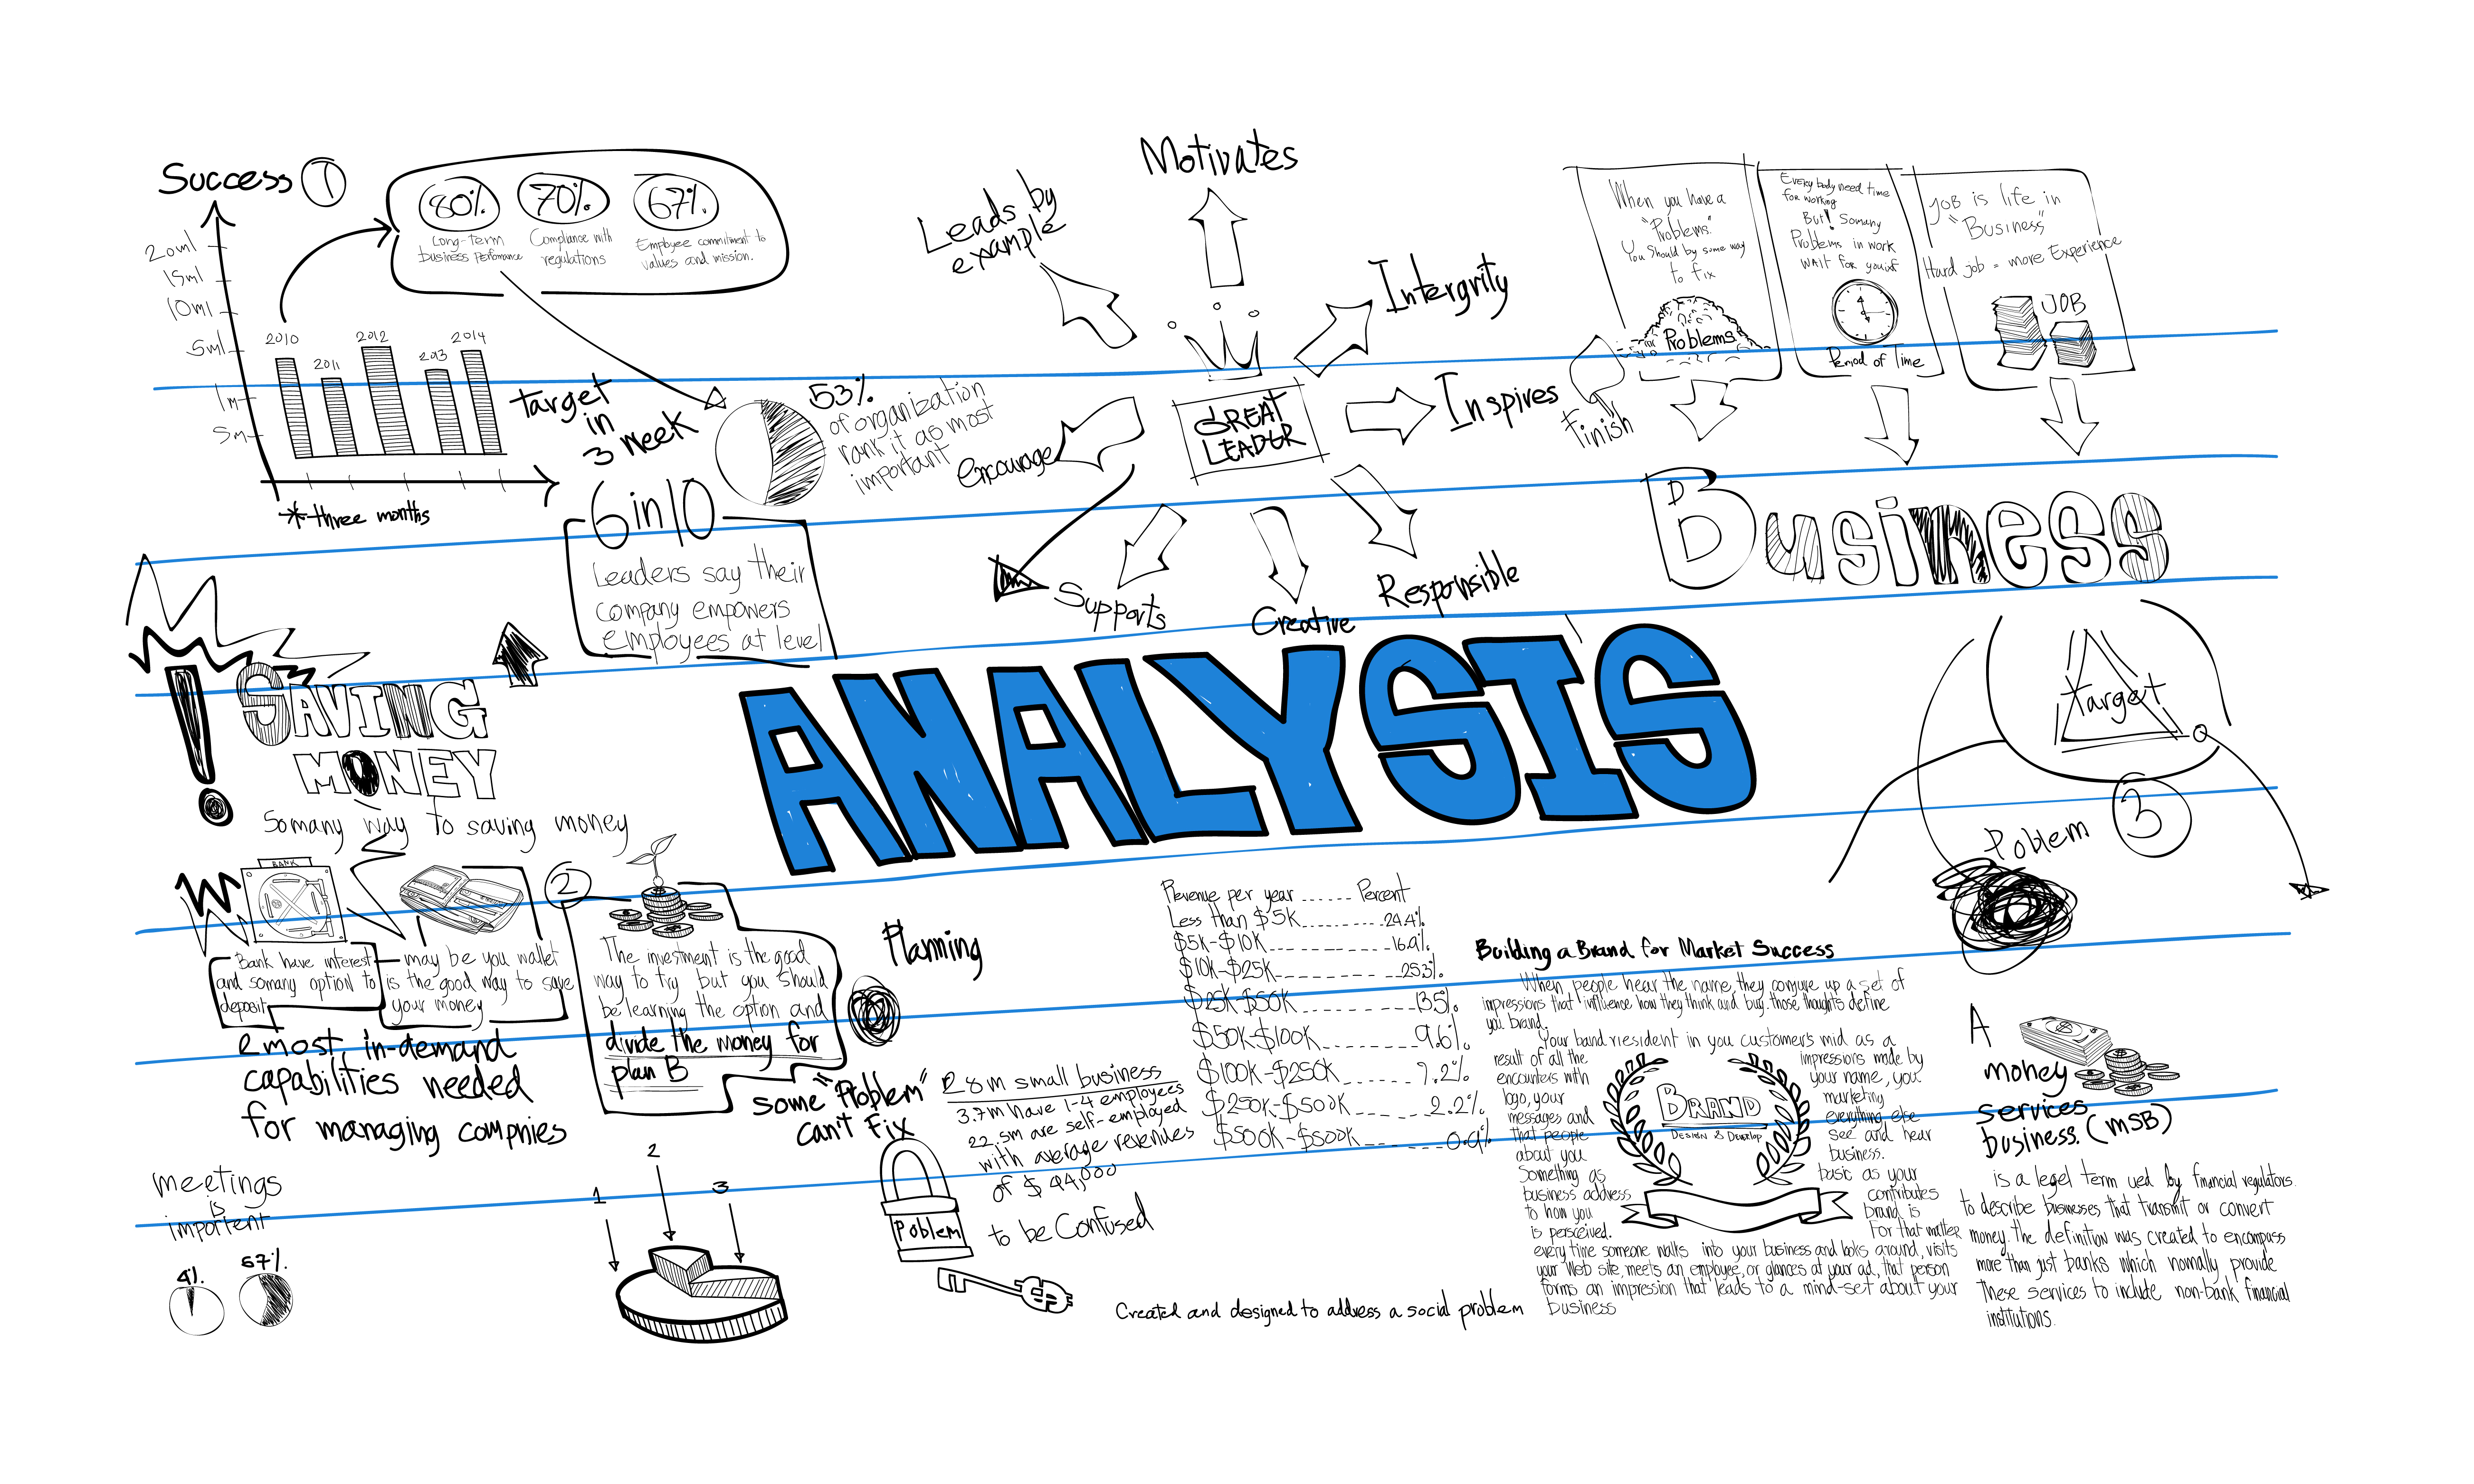 Success 1
20ml
15ml
10ml
5ml
1m
5m
2010
2011
2012
2013
2014
* three months
80%
Long-term
business Perfomance
70%
Compliance with
regulations
67%
Employee commitment to
values and mission.
target
in
3 week
53%
of organization
rank it as most
important
6 in 10
Leaders say their
company empowers
employees at level
Motivates
Leads by
example
Intergrity
Inspires
encourage
GREAT
LEADER
Supports
Creative
Responsible
When you have a
"Problems"
You Should by some way
to fix
Problems
finish
Every body need time
for working
But! Somany
Problems in work
WAIT for
Period of Time
JOB is life in
"Business"
Hard job = more Experience
JOB
Business
ANALYSIS
! SAVING
MONEY
Somany way to saving money
BANK
Bank have interest
and somany option to
deposit
may be you wallet
is the good way to save
your money
2
The investment is the good
way to try but you should
be learning the option and
divide the money for
plan B
Planning
e most in-demand
capabilities needed
for managing compnies
some "Problem"
can't Fix
Poblem
28m small business
3.7m have 1-4 employees
22.5m are self-employed
with average revenues
of $44,000
to be Confused
meetings
is
importent
4%.
67%.
1
2
3
Revenue per year ...... Percent
Less than $5K 24.4%
$5K-$10K 16.9%
$10K-$25K 25.3%
$25K-$50K 13.5%
$50K-$100K 9.6%
$100K-$250K 7.2%
$250K-$500K 2.2%
$500K-$500K 0.9%
Created and designed to address a social problem
Building a Brand for Market Success
When people hear the name, they conjure up a set of
impressions that influence how they think and buy. those thoughts define
you brand.
Your band riesident in you customer's mid as a
result of all the
encounters with
logo, your
messages and
that people
about you
Something as
business address
to how you
is perseived.
impressions made by
your name, you
marketing
everything else
see and hear
business.
basic as your
contributes
brand is
For that matter
BRAND
Design & Develop
every time someone walks into your business and looks around, visits
your Web site, meets an employee, or glances at your ad, that person
forms an impression that leads to a mind-set about your
business
Target
Poblem 3
A
money
services
business. (MSB)
is a legel term ued by financial regulators
to describe businesses that transmit or convert
money. The definition was created to encompass
more than just banks which nomally provide
these services to include non-bank financial
institutions.